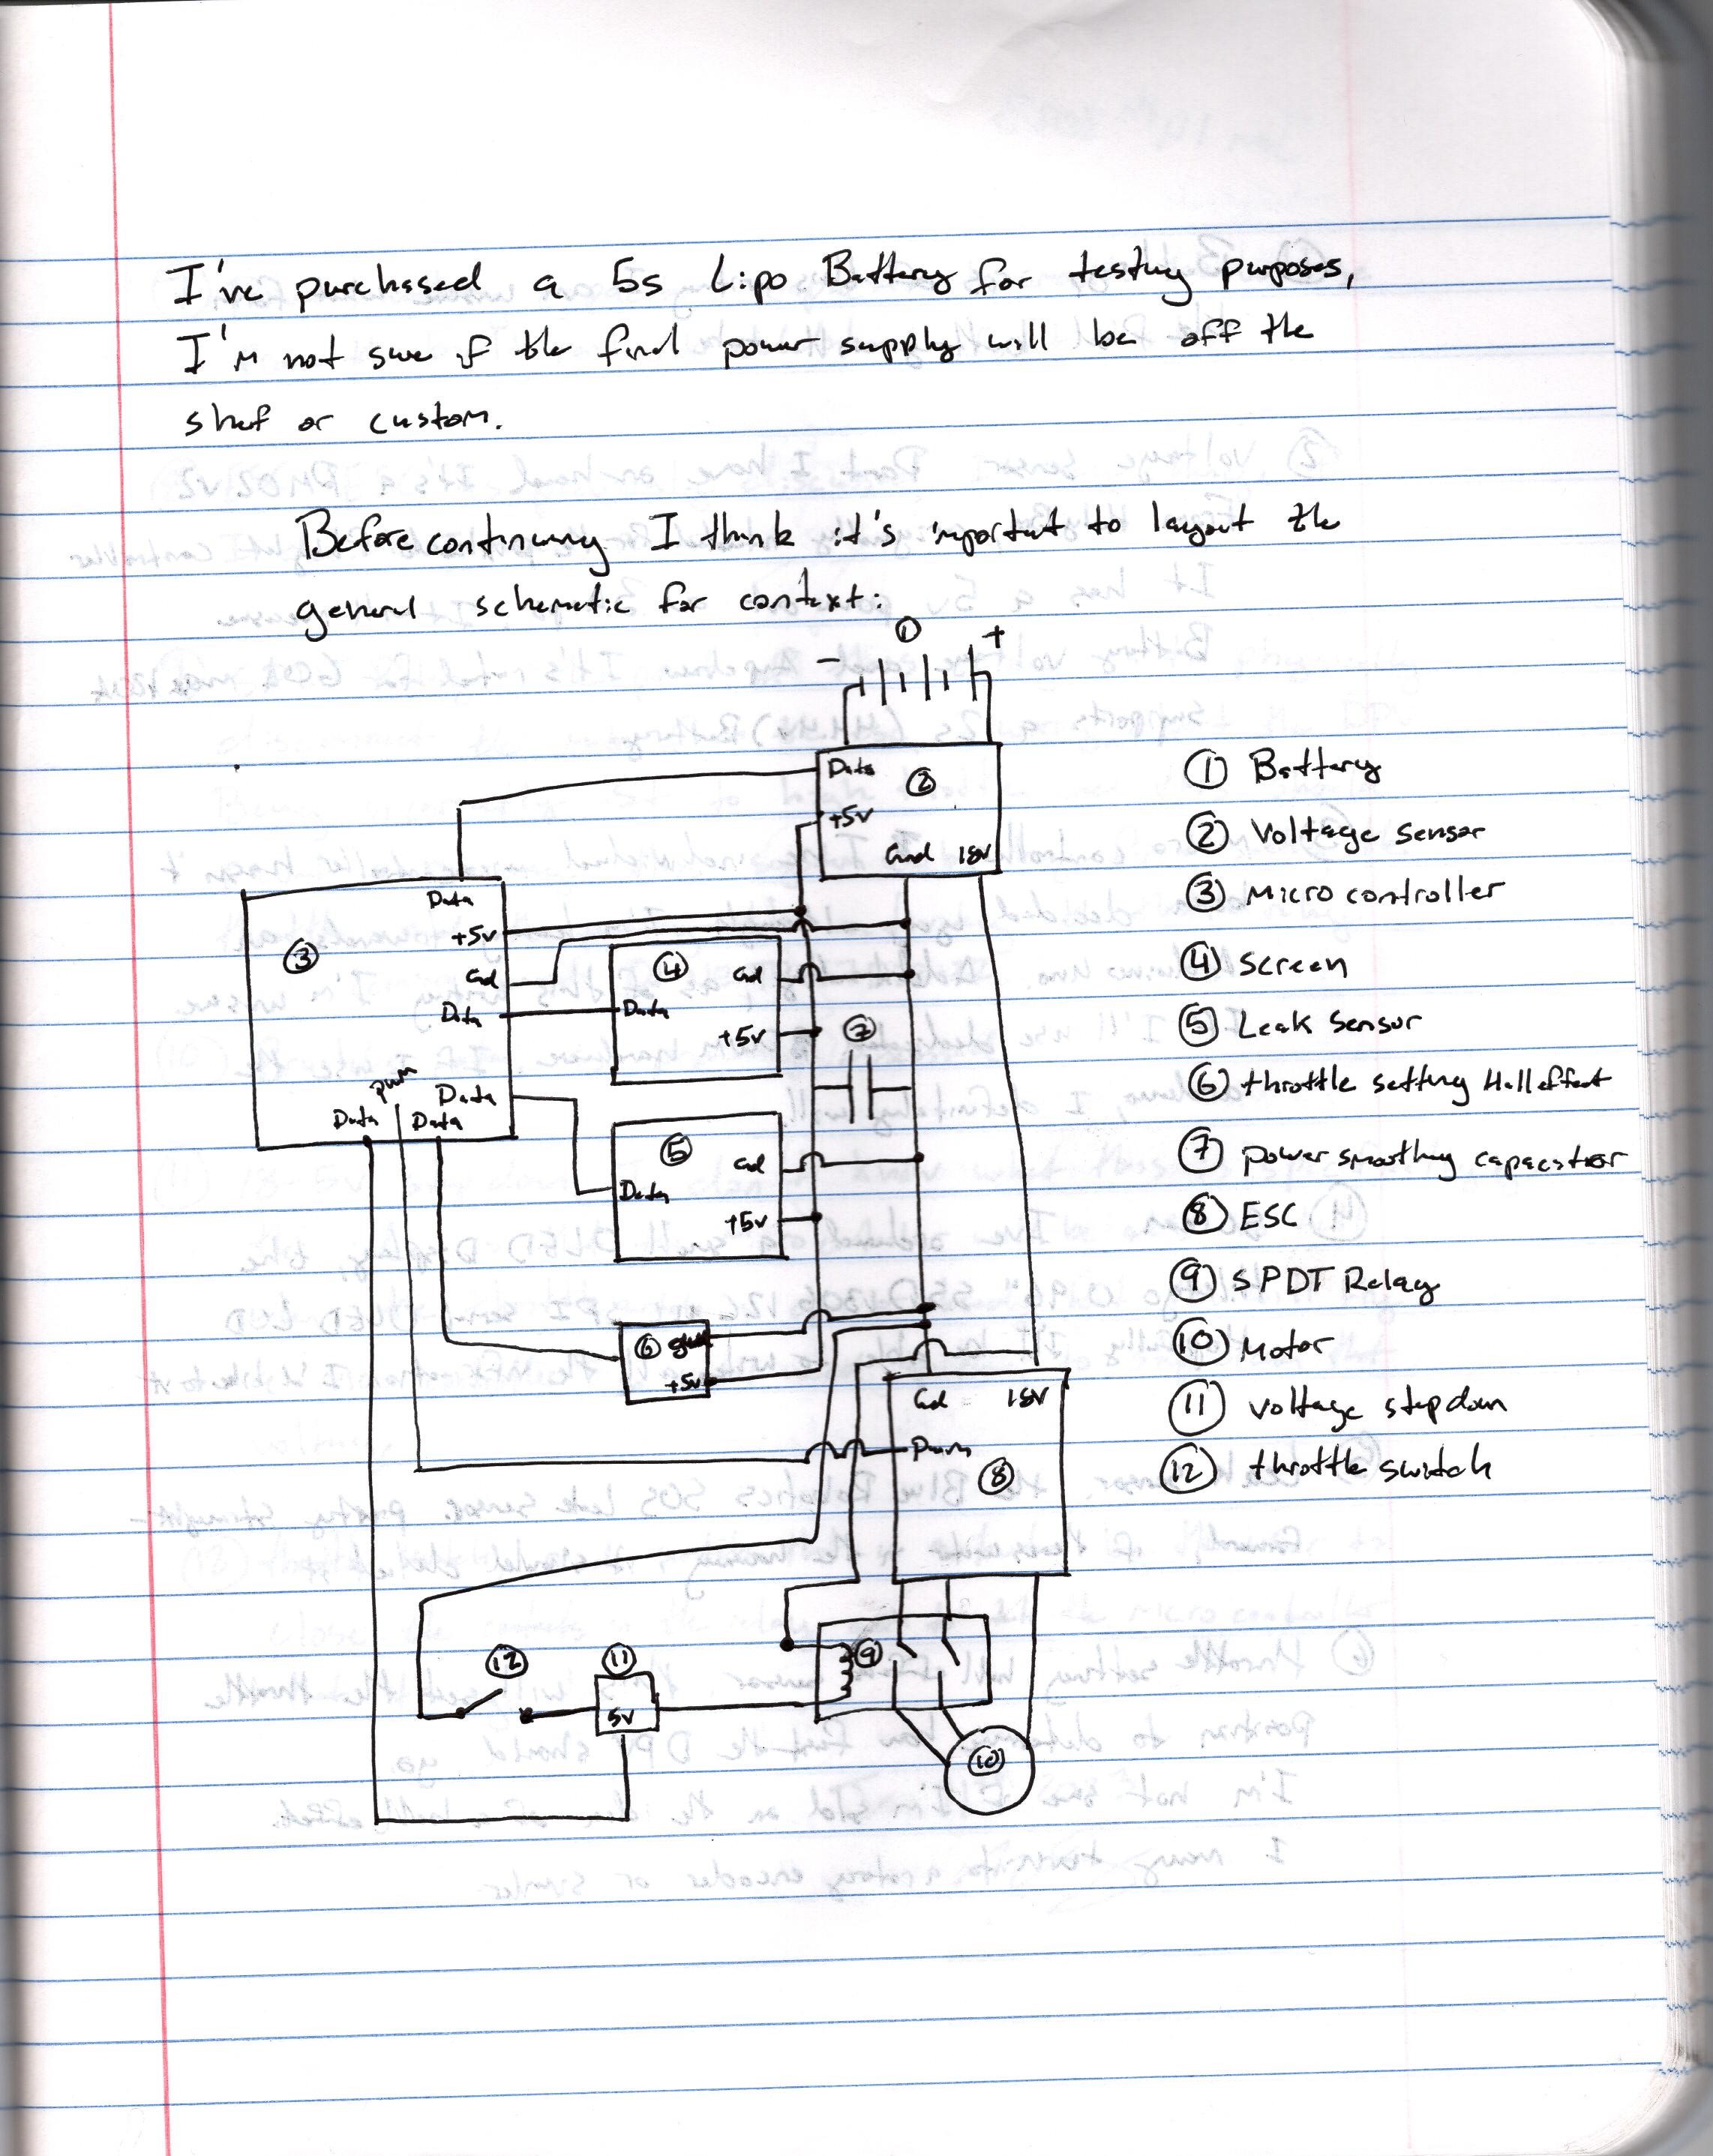 I've purchased a 5s Lipo Battery for testing purposes,
I'm not sure if the final power supply will be off the
shelf or custom.
Before continuing I think it's important to layout the
general schematic for context:
①
- +
Data ②
+5v
Gnd 18V
Data
+5v
③
Gd
Data
④ Gd
Data
+5v
⑦
pwm
Data
Data Data
⑤ Gd
Data
+5v
⑥ gnd
+5v
Gd 18V
Pwm
⑧
⑨
⑫ ⑪
5v
⑩
① Battery
② Voltage sensor
③ Micro controller
④ Screen
⑤ Leak Sensor
⑥ throttle setting Hall effect
⑦ power smoothing capacitor
⑧ ESC
⑨ SPDT Relay
⑩ Motor
⑪ voltage stepdown
⑫ throttle switch